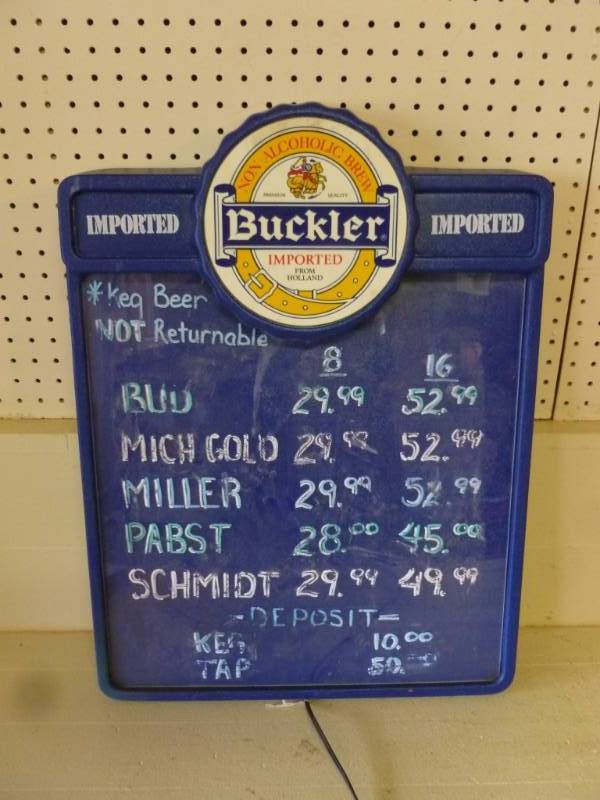 NON ALCOHOLIC BREW
PREMIUM QUALITY
IMPORTED Buckler® IMPORTED
IMPORTED
FROM
HOLLAND
*Keg Beer
NOT Returnable
8 16
BUD 29.99 52.99
MICH GOLD 29.99 52.99
MILLER 29.99 52.99
PABST 28.00 45.00
SCHMIDT 29.99 49.99
-DEPOSIT-
KEG 10.00
TAP 50.00